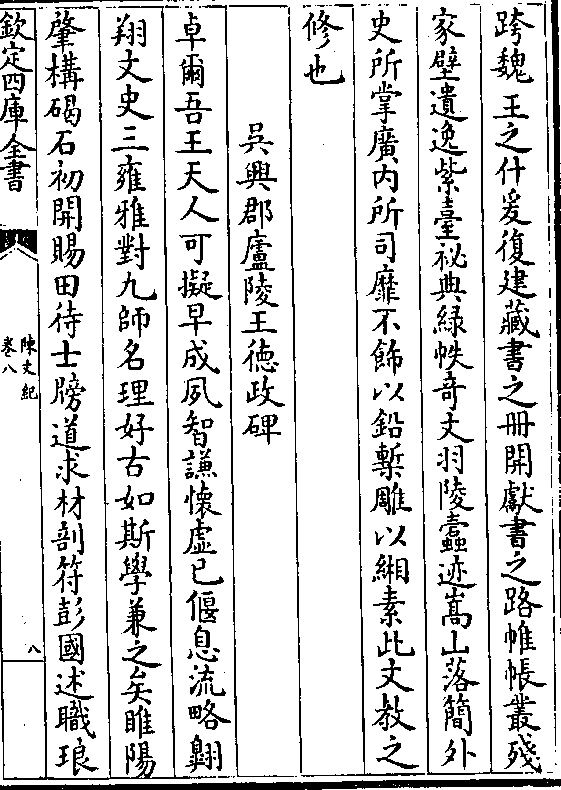 跨魏 王之什爰復建藏書之冊開獻書之路帷帳叢殘
家壁遺逸紫臺祕典緑帙奇文羽陵蠧迹嵩山落簡外
史所掌廣内所司靡不飾以鉛槧雕以緗素此文教之
修也
吳興郡廬陵王徳政碑
卓爾吾王天人可擬早成夙智謙懷虚已偃息流略翺
翔文史三雍雅對九師名理好古如斯學兼之矣睢陽
肇構碣石初開賜田待士牓道求材剖符彭國述職琅
欽定四庫全書
陳文紀
卷八
八